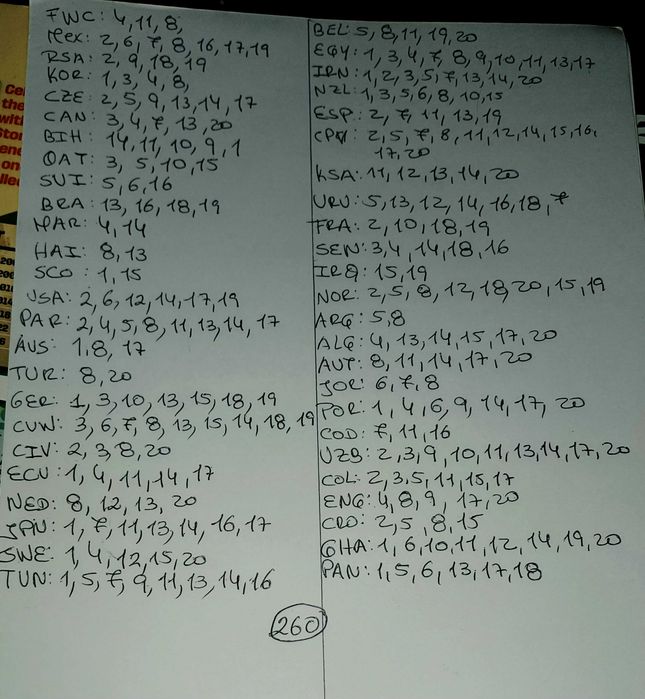 FWC: 4, 11, 8,
Mex: 2, 6, 7, 8, 16, 17, 19
RSA: 2, 9, 18, 19
KOR: 1, 3, 4, 8,
CZE: 2, 5, 9, 13, 14, 17
CAN: 3, 4, 7, 13, 20
BIH: 14, 11, 10, 9, 1
QAT: 3, 5, 10, 15
SUI: 5, 6, 16
BRA: 13, 16, 18, 19
MAR: 4, 14
HAI: 8, 13
SCO: 1, 15
USA: 2, 6, 12, 14, 17, 19
PAR: 2, 4, 5, 8, 11, 13, 14, 17
AUS: 1, 8, 17
TUR: 8, 20
GER: 1, 3, 10, 13, 15, 18, 19
CUW: 3, 6, 7, 8, 13, 15, 14, 18, 19
CIV: 2, 3, 8, 20
ECU: 1, 4, 11, 14, 17
NED: 8, 12, 13, 20
JPN: 1, 7, 11, 13, 14, 16, 17
SWE: 1, 4, 12, 15, 20
TUN: 1, 5, 7, 9, 11, 13, 14, 16
BEL: 5, 8, 11, 19, 20
EGY: 1, 3, 4, 7, 8, 9, 10, 11, 13, 17
IRN: 1, 2, 3, 5, 7, 13, 14, 20
NZL: 1, 3, 5, 6, 8, 10, 15
ESP: 2, 7, 11, 13, 19
CPV: 2, 5, 7, 8, 11, 12, 14, 15, 16,
17, 20
KSA: 11, 12, 13, 14, 20
URU: 5, 13, 12, 14, 16, 18, 7
FRA: 2, 10, 18, 19
SEN: 3, 4, 14, 18, 16
IRQ: 15, 19
NOR: 2, 5, 8, 12, 18, 20, 15, 19
ARG: 5, 8
ALG: 4, 13, 14, 15, 17, 20
AUT: 8, 11, 14, 17, 20
JOR: 6, 7, 8
POR: 1, 4, 6, 9, 14, 17, 20
COD: 7, 11, 16
UZB: 2, 3, 9, 10, 11, 13, 14, 17, 20
COL: 2, 3, 5, 11, 15, 17
ENG: 4, 8, 9, 17, 20
CRO: 2, 5, 8, 15
GHA: 1, 6, 10, 11, 12, 14, 19, 20
PAN: 1, 5, 6, 13, 17, 18
260